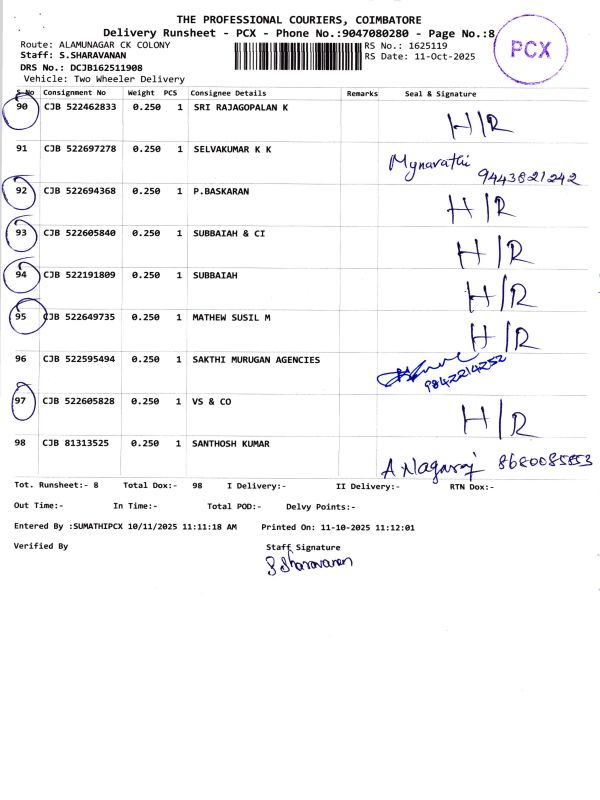 THE PROFESSIONAL COURIERS, COIMBATORE
Delivery Runsheet - PCX - Phone No.:9047080280 - Page No.:8
PCX
Route: ALAMUNAGAR CK COLONY
RS No.: 1625119
Staff: S.SHARAVANAN
RS Date: 11-Oct-2025
DRS No.: DCJB162511908
Vehicle: Two Wheeler Delivery
S No Consignment No Weight PCS Consignee Details Remarks Seal & Signature
90 CJB 522462833 0.250 1 SRI RAJAGOPALAN K H/R
91 CJB 522697278 0.250 1 SELVAKUMAR K K Mynavathi 9443821242
92 CJB 522694368 0.250 1 P.BASKARAN H/R
93 CJB 522605840 0.250 1 SUBBAIAH & CI H/R
94 CJB 522191809 0.250 1 SUBBAIAH H/R
95 CJB 522649735 0.250 1 MATHEW SUSIL M H/R
96 CJB 522595494 0.250 1 SAKTHI MURUGAN AGENCIES 9842214252
97 CJB 522605828 0.250 1 VS & CO H/R
98 CJB 81313525 0.250 1 SANTHOSH KUMAR A Nagaraj 8680085853
Tot. Runsheet:- 8 Total Dox:- 98 I Delivery:- II Delivery:- RTN Dox:-
Out Time:- In Time:- Total POD:- Delvy Points:-
Entered By :SUMATHIPCX 10/11/2025 11:11:18 AM Printed On: 11-10-2025 11:12:01
Verified By Staff Signature
S Sharavanan